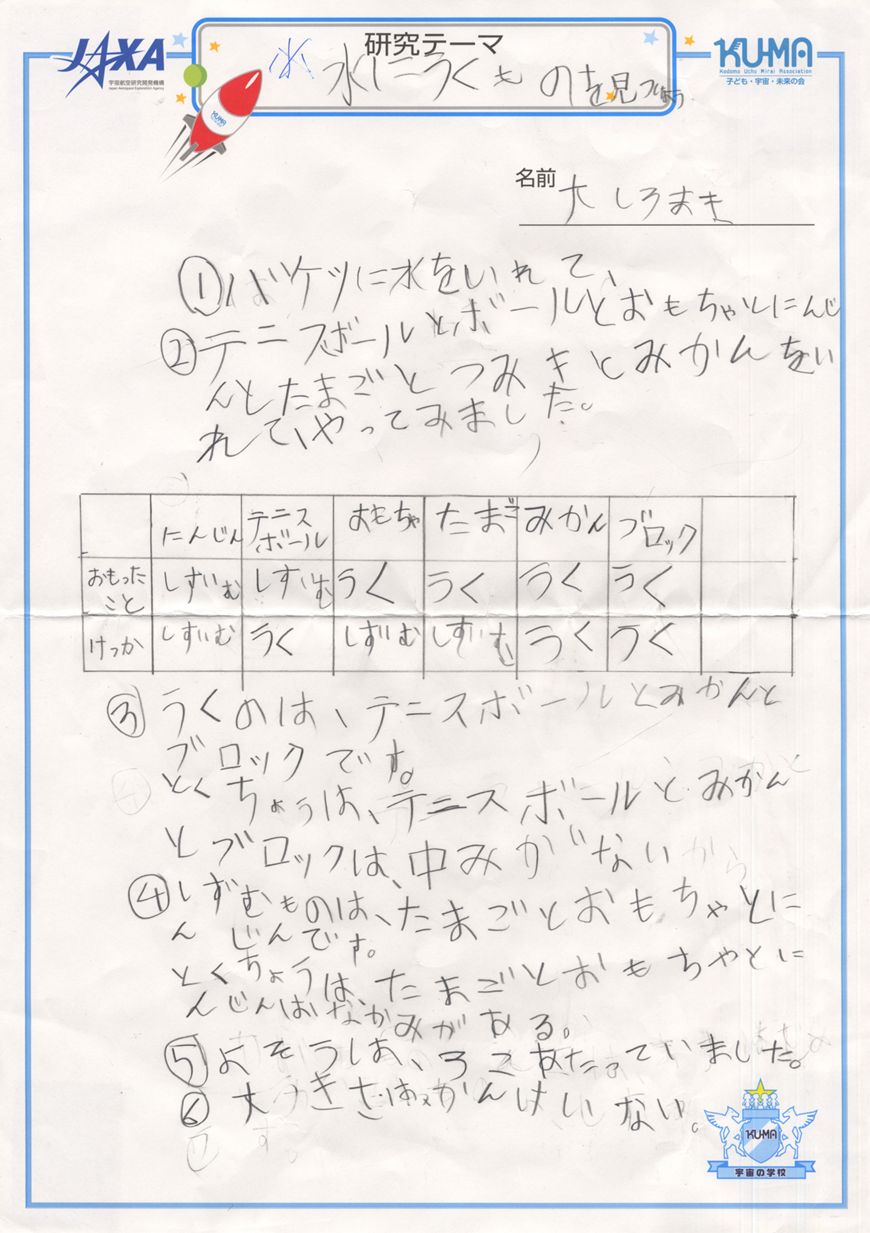 JAXA
宇宙航空研究開発機構
Japan Aerospace Exploration Agency
研究テーマ
水 水にうくものを見つけよう
KU-MA
Kodomo Uchu Mirai Association
子ども・宇宙・未来の会
KU-MA
名前 大しろまき
①バケツに水をいれて、
②テニスボールとボールとおもちゃとにんじ
んとたまごとつみきとみかんをい
れていやってみました。
にんじん テニスボール おもちゃ たまご みかん ブロック
おもったこと しずいむ しずいむ うく うく うく うく
けっか しずいむ うく しずいむ しずいむ うく うく
③うくのは、テニスボールとみかんと
ブロックです。
とくちょうは、テニスボールとみかん
とブロックは、中みがないから
④しずむものは、たまごとおもちゃとに
んじんです。
とくちょうは、たまごとおもちゃとに
んじんはなかみがある。
⑤よそうは、3こあたっていました。
⑥大きさはかんけいない。
KU-MA
宇宙の学校